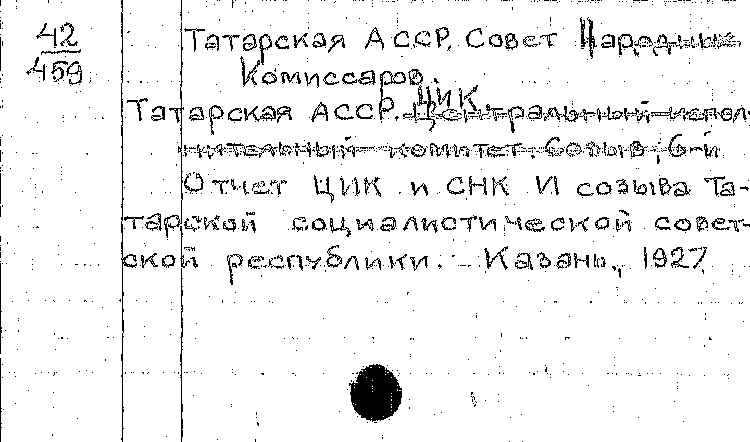 42
459
Татарская АССР. Совет Народных
Комиссаров.
ЦИК.
Татарская АССР. Центральный испол-
нительный комитет. Созыв, 6-й
Отчет ЦИК и СНК И созыва Та-
тарской социалистической совет-
ской республики. - Казань, 1927